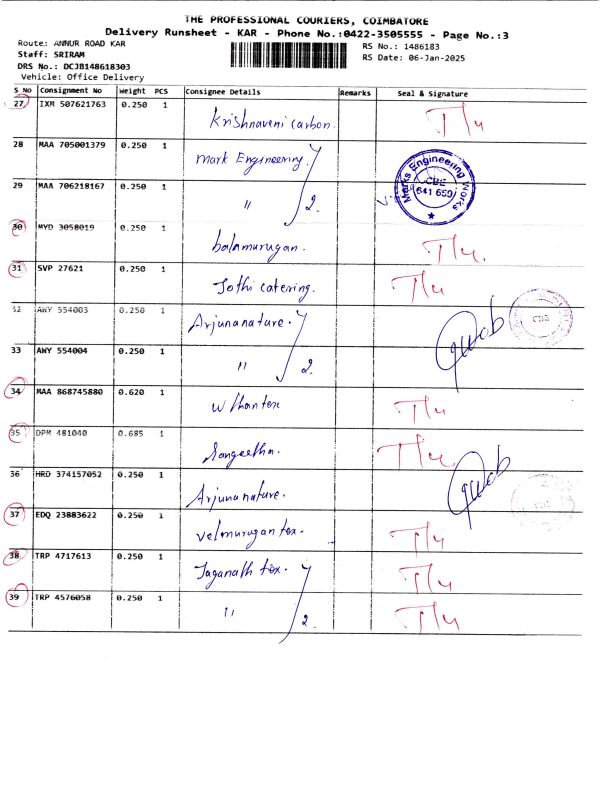 THE PROFESSIONAL COURIERS, COIMBATORE
Delivery Runsheet - KAR - Phone No.:0422-3505555 - Page No.:3
Route: ANNUR ROAD KAR
Staff: SRIRAM
DRS No.: DCJB148618303
Vehicle: Office Delivery
RS No.: 1486183
RS Date: 06-Jan-2025
S No Consignment No Weight PCS Consignee Details Remarks Seal & Signature
27 IXM 507621763 0.250 1 Krishnaveni carbon.
28 MAA 705001379 0.250 1 Mark Engineering.
29 MAA 706218167 0.250 1 " 2.
Marks Engineering Works
CBE
641 659
30 MYD 3058019 0.250 1 balamurugan.
31 SVP 27621 0.250 1 Jothi catering.
32 AWY 554003 0.250 1 Arjuna nature.
33 AWY 554004 0.250 1 " 2.
34 MAA 868745880 0.620 1
35 DPM 481040 0.685 1 Sangeetha.
36 HRD 374157052 0.250 1 Arjuna nature.
37 EDQ 23883622 0.250 1 velmurugan tex.
38 TRP 4717613 0.250 1 Jaganath tex.
39 TRP 4576058 0.250 1 " 2.